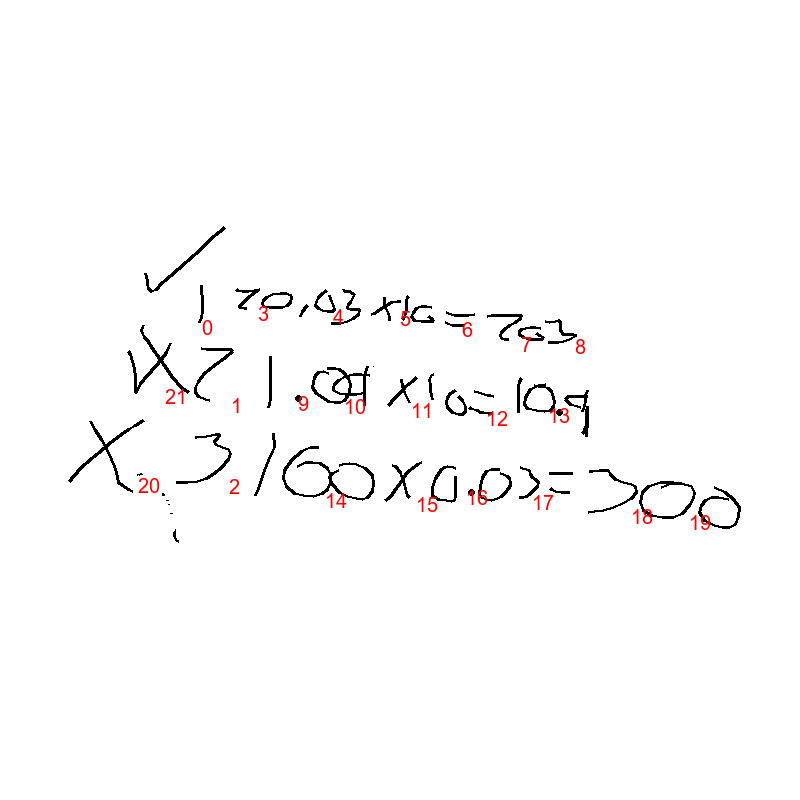 ✓ 1 70.03 x10 = 703
X 2 1.09 x10 = 10.9
X 3 160 x 0.03 = 300
0 1 2 3 4 5 6 7 8 9 10 11 12 13 14 15 16 17 18 19 20 21